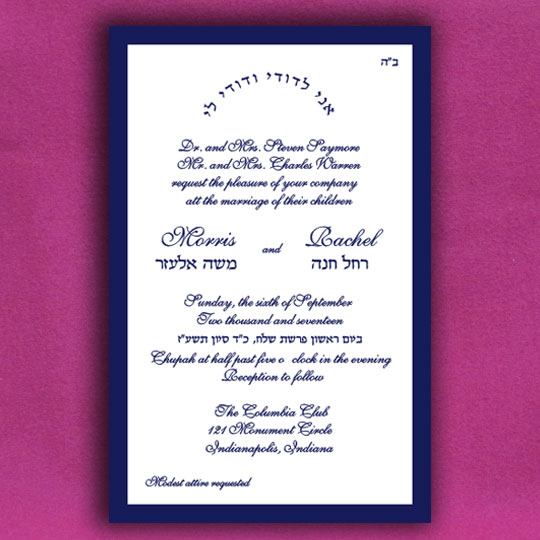 ב"ה
אני לדודי ודודי לי
Dr. and Mrs. Steven Saymore
Mr. and Mrs. Charles Warren
request the pleasure of your company
att the marriage of their children
Morris and Rachel
משה אלעזר רחל חנה
Sunday, the sixth of September
Two thousand and seventeen
ביום ראשון פרשת שלח, כ"ד סיון תשע"ז
Chupah at half past five o clock in the evening
Reception to follow
The Columbia Club
121 Monument Circle
Indianapolis, Indiana
Modest attire requested